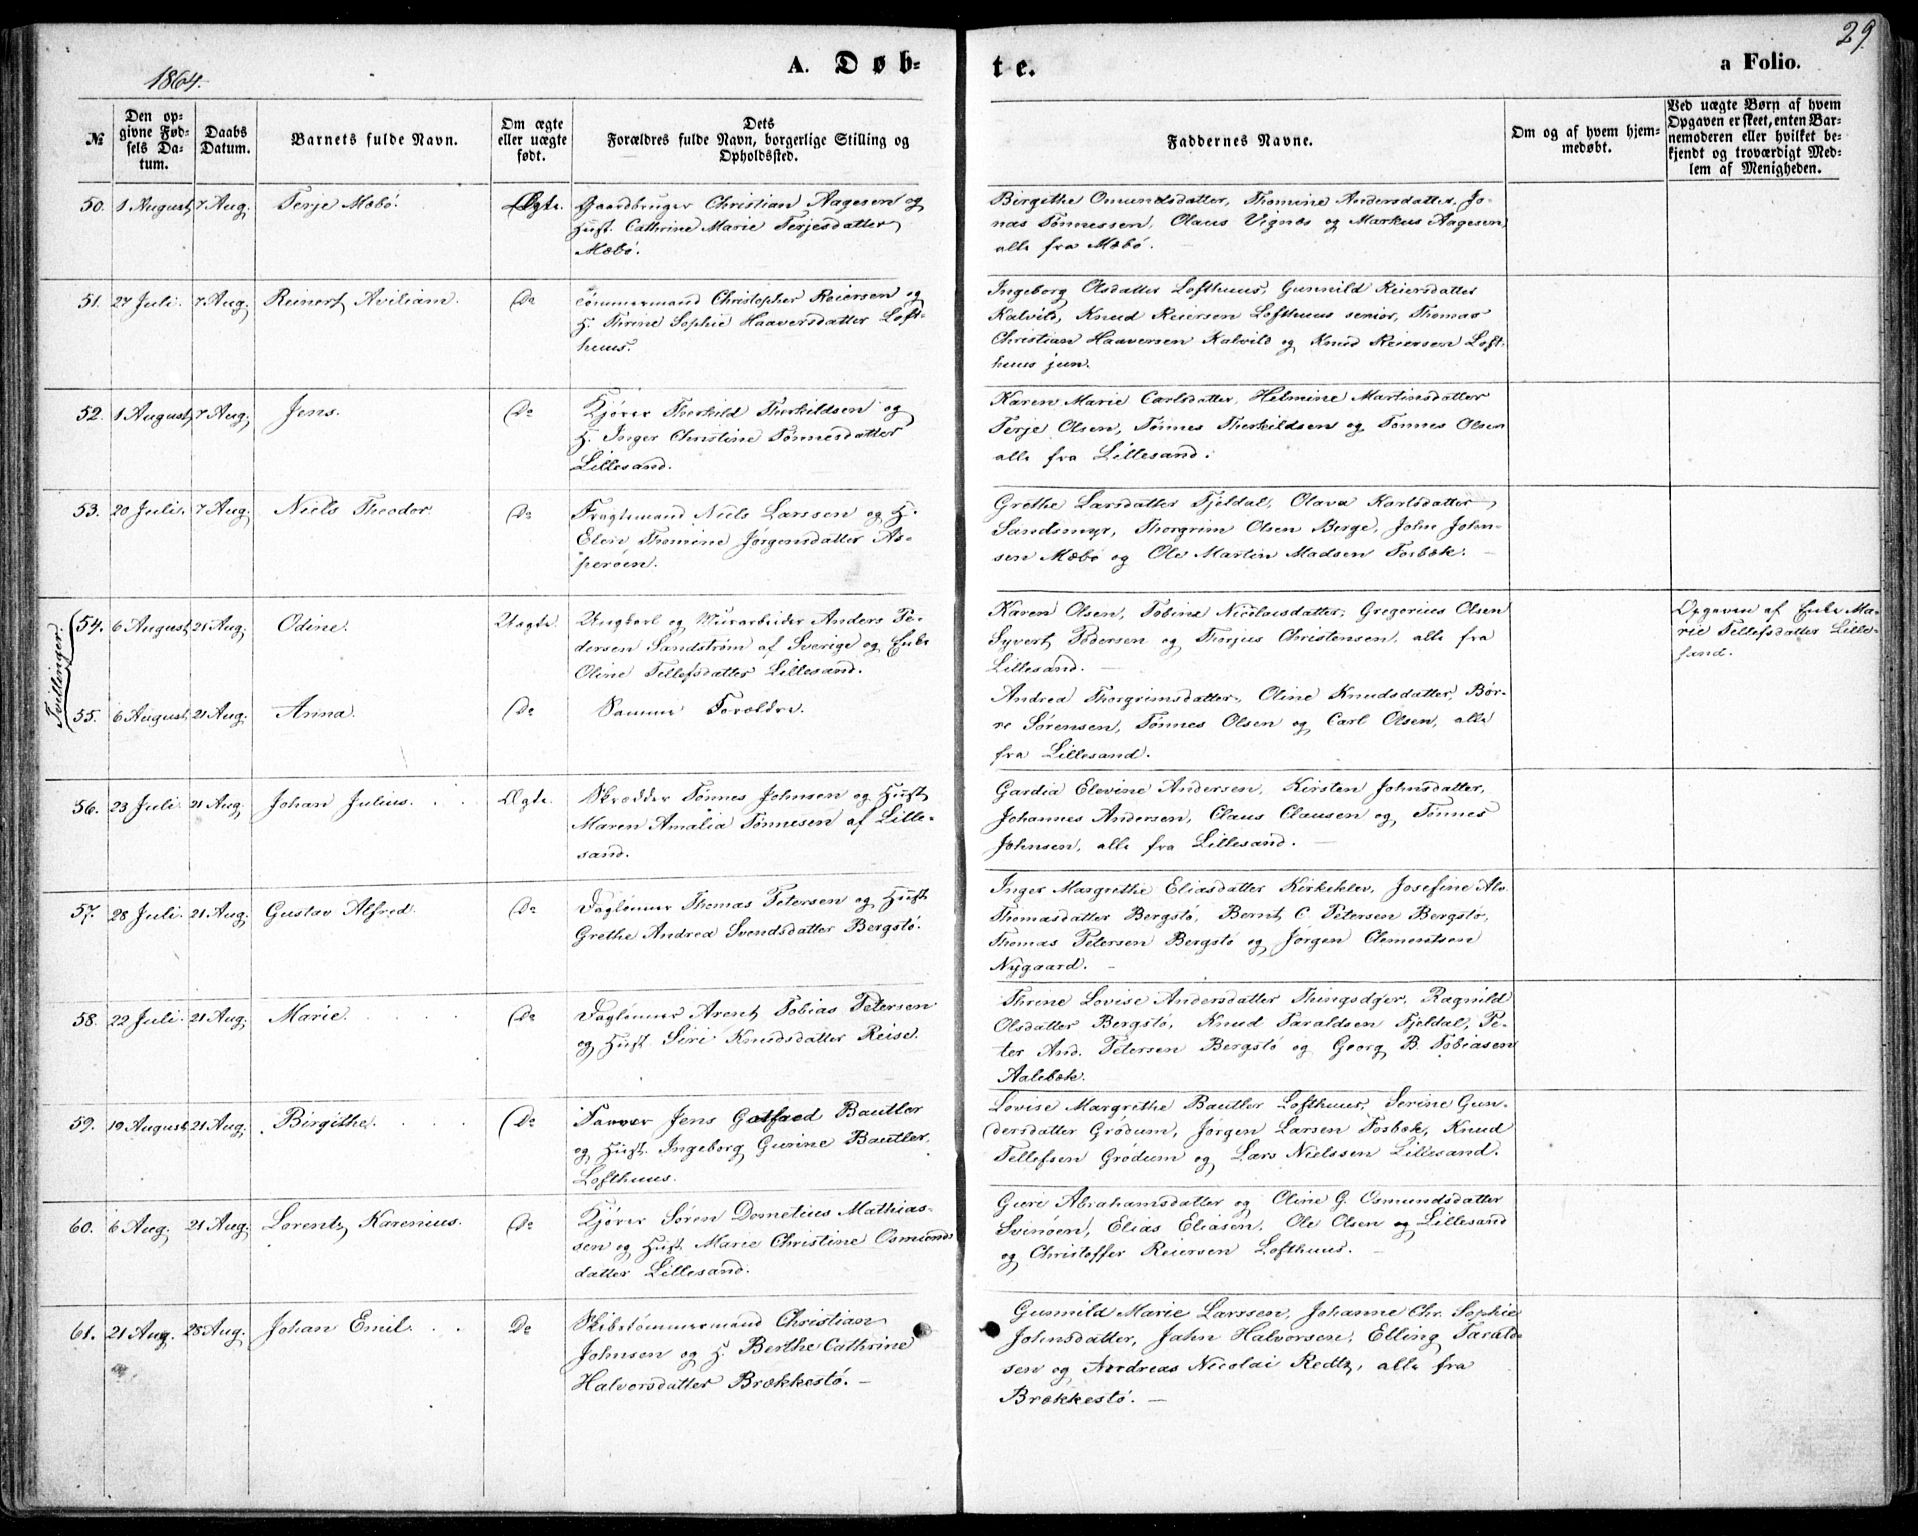 29.
A. Døb-
te.
a Folio.
1864.
№
Den op-
givne Fød-
sels Da-
tum.
Daabs
Datum.
Barnets fulde Navn.
Om ægte
eller uægte
født.
Dets
Forældres fulde Navn, borgerlige Stilling og
Opholdssted.
Faddernes Navne.
Om og af hvem hjem-
medøbt.
Ved uægte Børn af hvem
Opgaven er skeet, enten Bar-
nemoderen eller hvilket be-
kjendt og troværdigt Med-
lem af Menigheden.
50. 1 August 7 Aug. Terje Mæbø. Ægte.
Gaardbruger Christian Aagesen og
Hust. Cathrine Marie Terjesdatter
Mæbø.
Birgithe Omundsdatter, Thomine Andersdatter, Jo-
nas Tønnessen, Olaus Vignes og Markus Aagesen,
alle fra Mæbø. —
51. 27 Juli. 7 Aug. Reinert Aviliam. Do
Tømmermand Christopher Reiersen og
H. Thrine Sophie Haaversdatter Loft-
huus.
Ingeborg Olsdatter Lofthuus, Gunnild Reiersdatter
Kalvild, Knud Reiersen Lofthuus senior, Thomas
Christian Haaversen Kalvild og Knud Reiersen Loft-
huus jun.
52. 1 August 7 Aug. Jens. Do
Kjører Therkild Therkildsen og
H. Inger Christine Tønnesdatter
Lillesand.
Karen Marie Carlsdatter, Helmine Martinsdatter
Terje Olsen, Tønnes Therkildsen og Tønnes Olsen
alle fra Lillesand.
53. 20 Juli. 7 Aug. Niels Theodor. Do
Fragtemand Niels Larssen og H.
Elen Thomine Jørgensdatter As-
perøen.
Grethe Larsdatter Fjeldal, Olava Karlsdatter
Sandsmyr, Thorgrim Olsen Berge, John John-
sen Mæbø og Ole Martin Madsen Fosbæk. —
Tvillinger.
54. 6 August 21 Aug. Odine. Uægte.
Ungkarl og Murarbeider Anders Pe-
dersen Sandstrøm af Sverige og Enke
Oline Tellefsdatter Lillesand.
Karen Olsen, Tobine Nicolaisdatter, Gregorius Olsen
Syvert Pedersen og Thorjus Christensen, alle fra
Lillesand. —
Opgaven af Enke Ma-
rie Tellefsdatter Lille-
sand.
55. 6 August 21 Aug. Anna. Do
Samme Forældre.
Andrea Thorgrimsdatter, Oline Knudsdatter, Bør-
re Sørensen, Tønnes Olsen og Carl Olsen, alle
fra Lillesand.
56. 23 Juli. 21 Aug. Johan Julius. Ægte.
Skrædder Tønnes Johnsen og Hust.
Maren Amalia Tønnesen af Lille-
sand.
Gardia Elevine Andersen, Kirsten Johnsdatter,
Johannes Andersen, Claus Clausen og Tønnes
Johnsen, alle fra Lillesand. —
57. 28 Juli. 21 Aug. Gustav Alfred. Do
Daglønner Thomas Petersen og Hust.
Grethe Andrea Svendsdatter Bergstø.
Inger Margrethe Eliasdatter Kirkeklev, Josefine Al.
Thomasdatter Bergstø, Bernt C. Petersen Bergstø,
Thomas Petersen Bergstø og Jørgen Clementsen
Nygaard. —
58. 22 Juli. 21 Aug. Marie. Do
Daglønner Arent Tobias Petersen
og Hust. Siri Knudsdatter Reise.
Thrine Lovise Andersdatter Ragnild
Olsdatter Bergstø, Knud Taraldsen Fjeldal, Pe-
ter And. Petersen Bergstø og Georg B. Tobiasen
Aalebæk.
59. 19 August 21 Aug. Birgithe. Do
Farver Jens Gotfred Bautler
og Hust. Ingeborg Gurine Bautler,
Lofthuus.
Lovise Margrethe Bautler Lofthuus, Serine Gun-
dersdatter Grødum, Jørgen Larsen Fosbæk, Knud
Tellefsen Grødum og Lars Nielssen Lillesand.
60. 6 Aug. 21 Aug. Lorentz Karenius. Do
Kjører Søren Dometius Mathias-
sen og Hust. Marie Christine Osmunds
datter Lillesand.
Guri Abrahamsdatter og Oline G. Osmundsdatter
Svinøen, Elias Eliasen, Ole Olsen og Lillesand
og Christoffer Reiersen Lofthuus. —
61. 21 Aug. 28 Aug. Johan Emil. Do
Skibstømmermand Christian
Johnsen og H. Berthe Cathrine
Halvorsdatter Brækkestø. —
Gunnild Marie Larssen, Johanne Chr. Sophie
Johnsdatter, Jahn Halvorsen, Elling Tarald-
sen og Andreas Nicolai Redtz, alle fra
Brækkestø. —